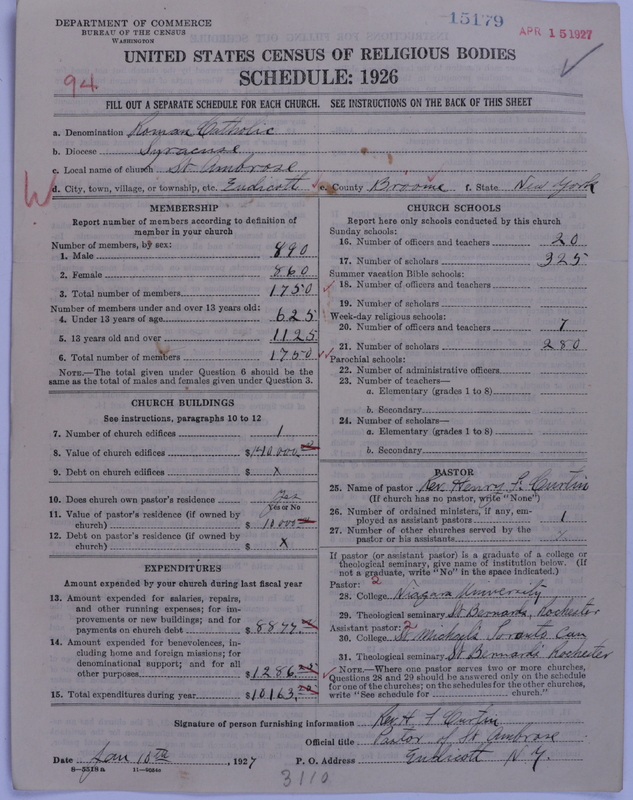 DEPARTMENT OF COMMERCE
BUREAU OF THE CENSUS
WASHINGTON
15179
APR 15 1927
94
UNITED STATES CENSUS OF RELIGIOUS BODIES
SCHEDULE: 1926
FILL OUT A SEPARATE SCHEDULE FOR EACH CHURCH. SEE INSTRUCTIONS ON THE BACK OF THIS SHEET
a. Denomination Roman Catholic
b. Diocese Syracuse
c. Local name of church St Ambrose
W
d. City, town, village, or township, etc. Endicott e. County Broome f. State New York
MEMBERSHIP
Report number of members according to definition of
member in your church
Number of members, by sex:
1. Male 890
2. Female 860
3. Total number of members 1750
Number of members under and over 13 years old:
4. Under 13 years of age 625
5. 13 years old and over 1125
6. Total number of members 1750
NOTE.—The total given under Question 6 should be
same as the total of males and females given under Question 3.
CHURCH BUILDINGS
See instructions, paragraphs 10 to 12
7. Number of church edifices 1
8. Value of church edifices $
9. Debt on church edifices $ X
10. Does church own pastor's residence Yes
Yes or No
11. Value of pastor's residence (if owned by
church) $ 10000
12. Debt on pastor's residence (if owned by
church) $ X
EXPENDITURES
Amount expended by your church during last fiscal year
13. Amount expended for salaries, repairs,
and other running expenses; for im-
provements or new buildings; and for
payments on church debt $ 8877
14. Amount expended for benevolences, in-
cluding home and foreign missions; for
denominational support; and for all
other purposes $ 1286
15. Total expenditures during year $ 10163
CHURCH SCHOOLS
Report here only schools conducted by this church
Sunday schools:
16. Number of officers and teachers 20
17. Number of scholars 325
Summer vacation Bible schools:
18. Number of officers and teachers
19. Number of scholars
Week-day religious schools:
20. Number of officers and teachers 7
21. Number of scholars 280
Parochial schools:
22. Number of administrative officers
23. Number of teachers—
a. Elementary (grades 1 to 8)
b. Secondary
24. Number of scholars—
a. Elementary (grades 1 to 8)
b. Secondary
PASTOR
25. Name of pastor Rev. Henry F. Curtin
(If church has no pastor, write "None")
26. Number of ordained ministers, if any, em-
ployed as assistant pastors 1
27. Number of other churches served by the
pastor or his assistants
If pastor (or assistant pastor) is a graduate of a college or
theological seminary, give name of institution below. (If
not a graduate, write "No" in the space indicated.)
Pastor: 2
28. College Niagara University
29. Theological seminary St Bernards, Rochester
Assistant pastor: 2
30. College St Michaels Toronto Can
31. Theological seminary St Bernards Rochester
NOTE.—Where one pastor serves two or more churches,
Questions 28 and 29 should be answered only on the schedule
for one of the churches; on the schedules for the other churches,
write "See schedule for church."
Signature of person furnishing information Rev. H. F. Curtin
Official title Pastor of St Ambrose
Date Jan 10th, 1927 P. O. Address Endicott N.Y.
8—5518a 11—4034o
3110